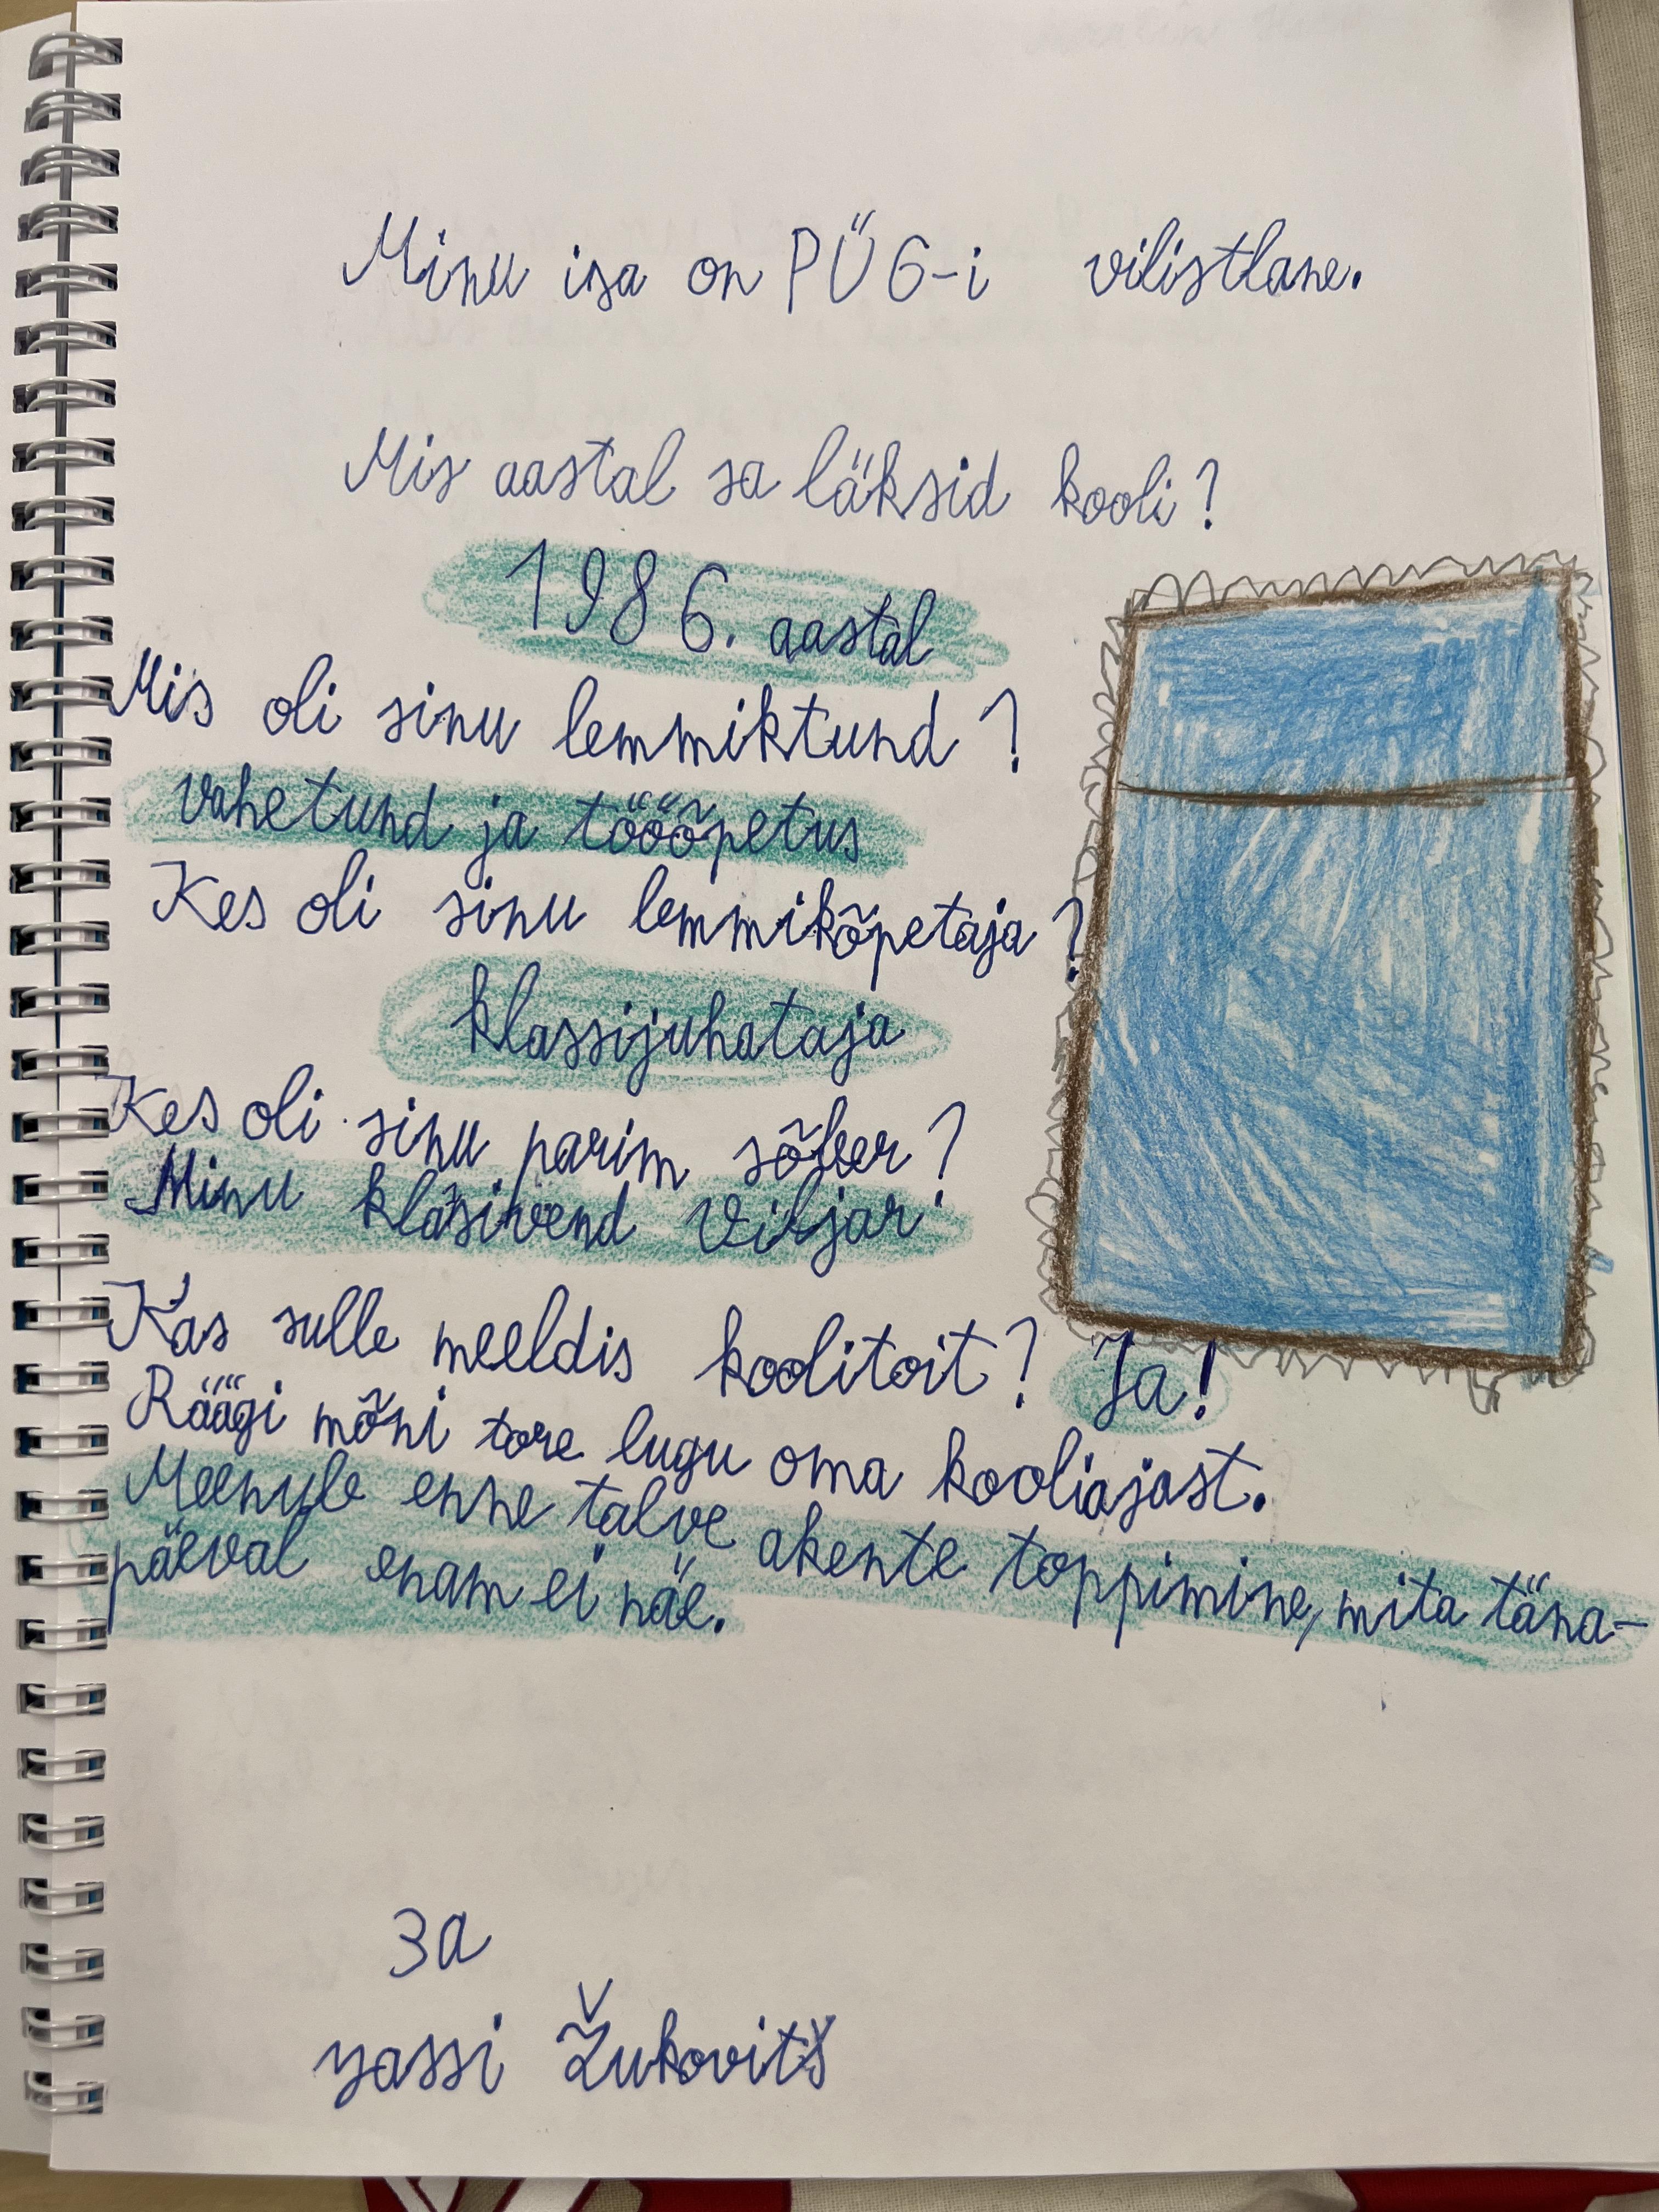 Minu isa on PÜG-i vilistlane.
Mis aastal sa läksid kooli?
1986. aastal
Mis oli sinu lemmiktund?
vahetund ja tööõpetus
Kes oli sinu lemmikõpetaja?
klassijuhataja
Kes oli sinu parim sõber?
Minu klassivend Viljar
Kas sulle meeldis koolitoit? Ja!
Räägi mõni tore lugu oma kooliajast.
Meenub enne talve akente toppimine, mita täna-
päeval enam ei näe.
3a
Yassi Žukovitš